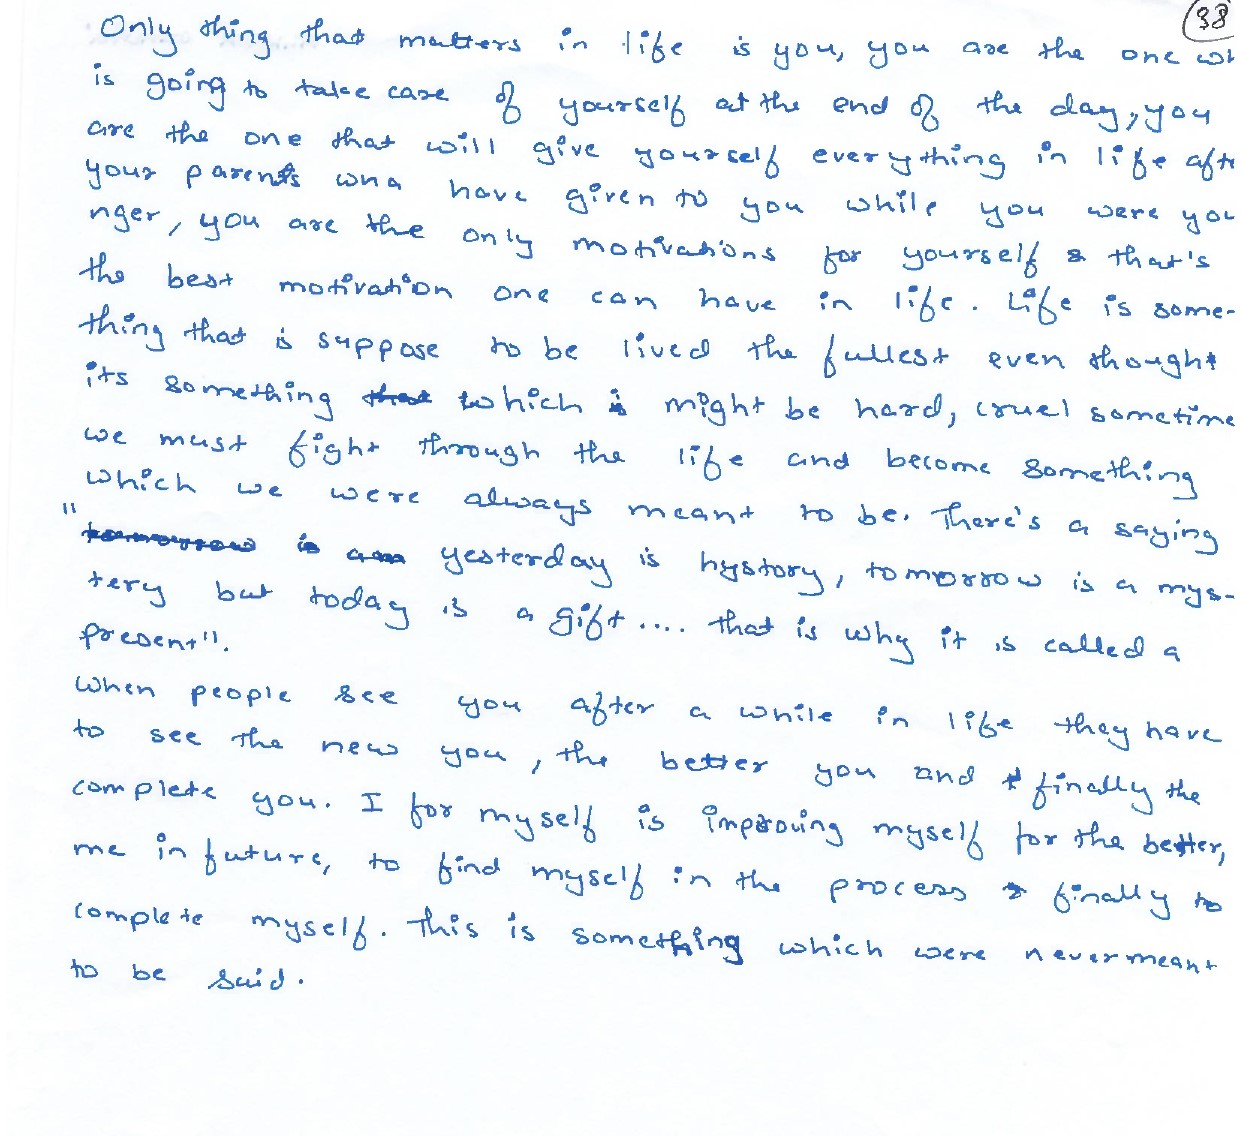 38
Only thing that matters in life is you, you are the one wh
is going to take care of yourself at the end of the day, you
are the one that will give yourself everything in life afte
your parents wha have given to you while you were you
nger, you are the only motivations for yourself & that's
the best motivation one can have in life. Life is some-
thing that is suppose to be lived the fullest even thought
its something that which is might be hard, cruel sometime
we must fight through the life and become something
which we were always meant to be. There's a saying
" tomorrow is a m yesterday is hystory, tomorrow is a mys-
tery but today is a gift .... that is why it is called a
present".
When people see you after a while in life they have
to see the new you, the better you and finally the
complete you. I for myself is improving myself for the better,
me in future, to find myself in the process & finally to
complete myself. This is something which were never meant
to be said.